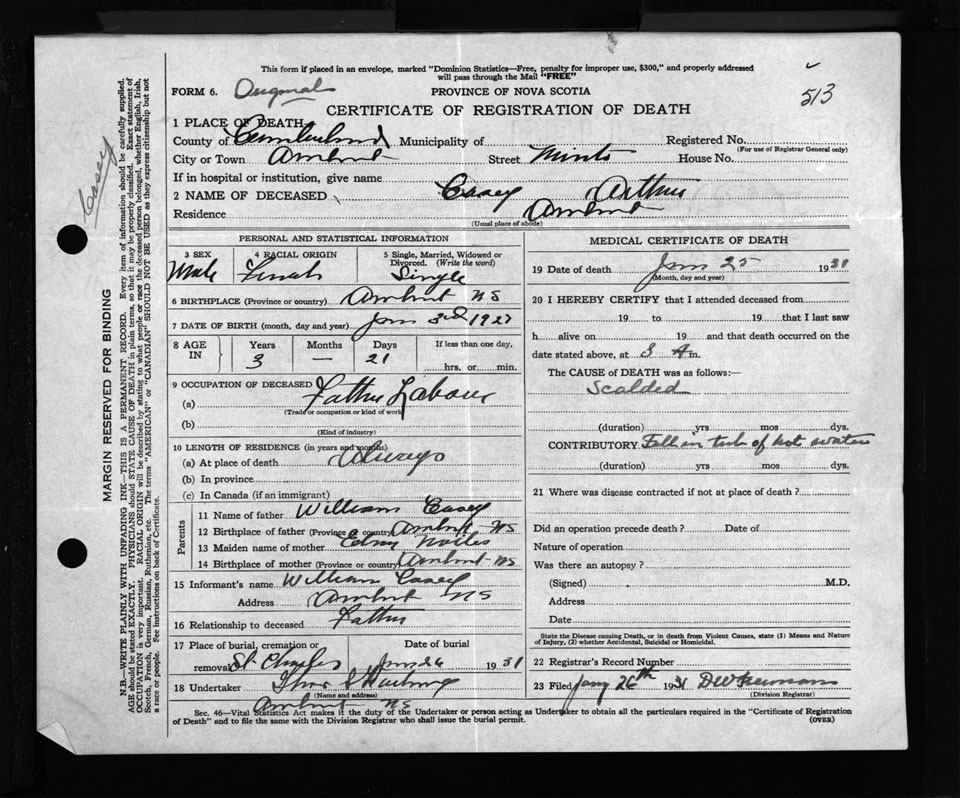 This form if placed in an envelope, marked "Dominion Statistics—Free, penalty for improper use, $300," and properly addressed
will pass through the Mail "FREE"
FORM 6. PROVINCE OF NOVA SCOTIA
513
CERTIFICATE OF REGISTRATION OF DEATH
1 PLACE OF DEATH—
County of Cumberland Municipality of Registered No.
(For use of Registrar General only)
City or Town Amherst Street Minto House No.
If in hospital or institution, give name
2 NAME OF DECEASED Casey Arthur
Residence Amherst
(Usual place of abode)
PERSONAL AND STATISTICAL INFORMATION
3 SEX 4 RACIAL ORIGIN 5 Single, Married, Widowed or
Divorced. (Write the word)
Male French Single
6 BIRTHPLACE (Province or country) Amherst NS
7 DATE OF BIRTH (month, day and year) Jan 3rd 1927
8 AGE IN Years Months Days If less than one day,
3 — 21 hrs. or min.
9 OCCUPATION OF DECEASED
(a) Father Labour
(Trade or occupation or kind of work)
(b)
(Kind of industry)
10 LENGTH OF RESIDENCE (in years and months)
(a) At place of death Always
(b) In province
(c) In Canada (if an immigrant)
Parents
11 Name of father William Casey
12 Birthplace of father (Province or country) Amherst NS
13 Maiden name of mother
14 Birthplace of mother (Province or country) Amherst NS
15 Informant's name William Casey
Address Amherst NS
16 Relationship to deceased Father
17 Place of burial, cremation or Date of burial
removal St. Charles Jan 26 1931
18 Undertaker
(Name and address)
Amherst NS
MEDICAL CERTIFICATE OF DEATH
19 Date of death Jan 25 1931
(Month, day and year)
20 I HEREBY CERTIFY that I attended deceased from
19 to 19 that I last saw
h alive on 19 and that death occurred on the
date stated above, at 3 A m.
The CAUSE of DEATH was as follows:—
Scalded
(duration) yrs mos dys.
CONTRIBUTORY Fell in tub of hot water
(duration) yrs mos dys.
21 Where was disease contracted if not at place of death?
Did an operation precede death? Date of
Nature of operation
Was there an autopsy?
(Signed) M.D.
Address
Date
State the Disease causing Death, or in death from Violent Causes, state (1) Means and Nature
of Injury, (2) whether Accidental, Suicidal or Homicidal.
22 Registrar's Record Number
23 Filed Jany 26th 1931
(Division Registrar)
Sec. 46—Vital Statistics Act makes it the duty of the Undertaker or person acting as Undertaker to obtain all the particulars required in the "Certificate of Registration
of Death" and to file the same with the Division Registrar who shall issue the burial permit. (OVER)
Casey
MARGIN RESERVED FOR BINDING
N.B.—WRITE PLAINLY WITH UNFADING INK—THIS IS A PERMANENT RECORD. Every item of information should be carefully supplied.
AGE should be stated EXACTLY. PHYSICIANS should STATE CAUSE OF DEATH in plain terms, so that it may be properly classified. Exact statement of
OCCUPATION is very important. RACIAL ORIGIN will be described by stating to what people or race the deceased person belonged, whether English, Irish,
Scotch, French, German, Russian, Ruthenian, etc. The terms "AMERICAN" or "CANADIAN" SHOULD NOT BE USED as they express citizenship but not
a race or people. See instructions on back of Certificate.